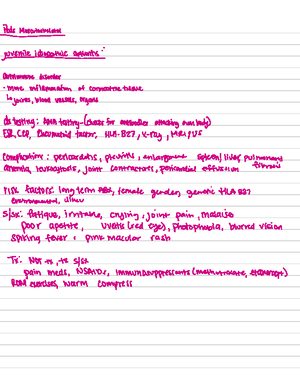 Peds Musculoskeletal
juvenile idiopathic arthritis:
Autoimmune disorder
- more inflammation of connective tissue
↳ joints, blood vessels, organs
dx testing: ANA testing - (looks for antibodies attacking own body)
ESR, CRP, Rheumatoid factor, HLA-B27, X-ray, MRI/US
Complications: pericarditis, pleuritis, enlargement spleen/liver, pulmonary fibrosis
anemia, leukocytosis, joint contractures, pericardial effusion
risk factors: long term, female gender, genetic HLA B27
environmental, illness
S/sx: fatigue, irritable, crying, joint pain, malaise
poor apetite, uveitis (red eye), photophobia, blurred vision
spiking fever, pink macular rash
Tx: No tx, tx s/sx
pain meds, NSAIDs, immunosuppressants (methotrexate, etanercept)
ROM exercises, warm compress